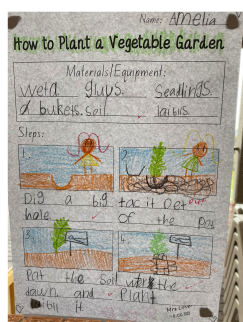 Name: Amelia
How to Plant a Vegetable Garden
Materials/Equipment:
Wetn gluvs. Seedlings.
a bukets. Soil laibls
Steps:
1.
2.
Dig a big
hole.
tac it Oet
of the Pot
3.
4.
Pat the Soil
dawn and
laibll it
the
Plant
Mrs